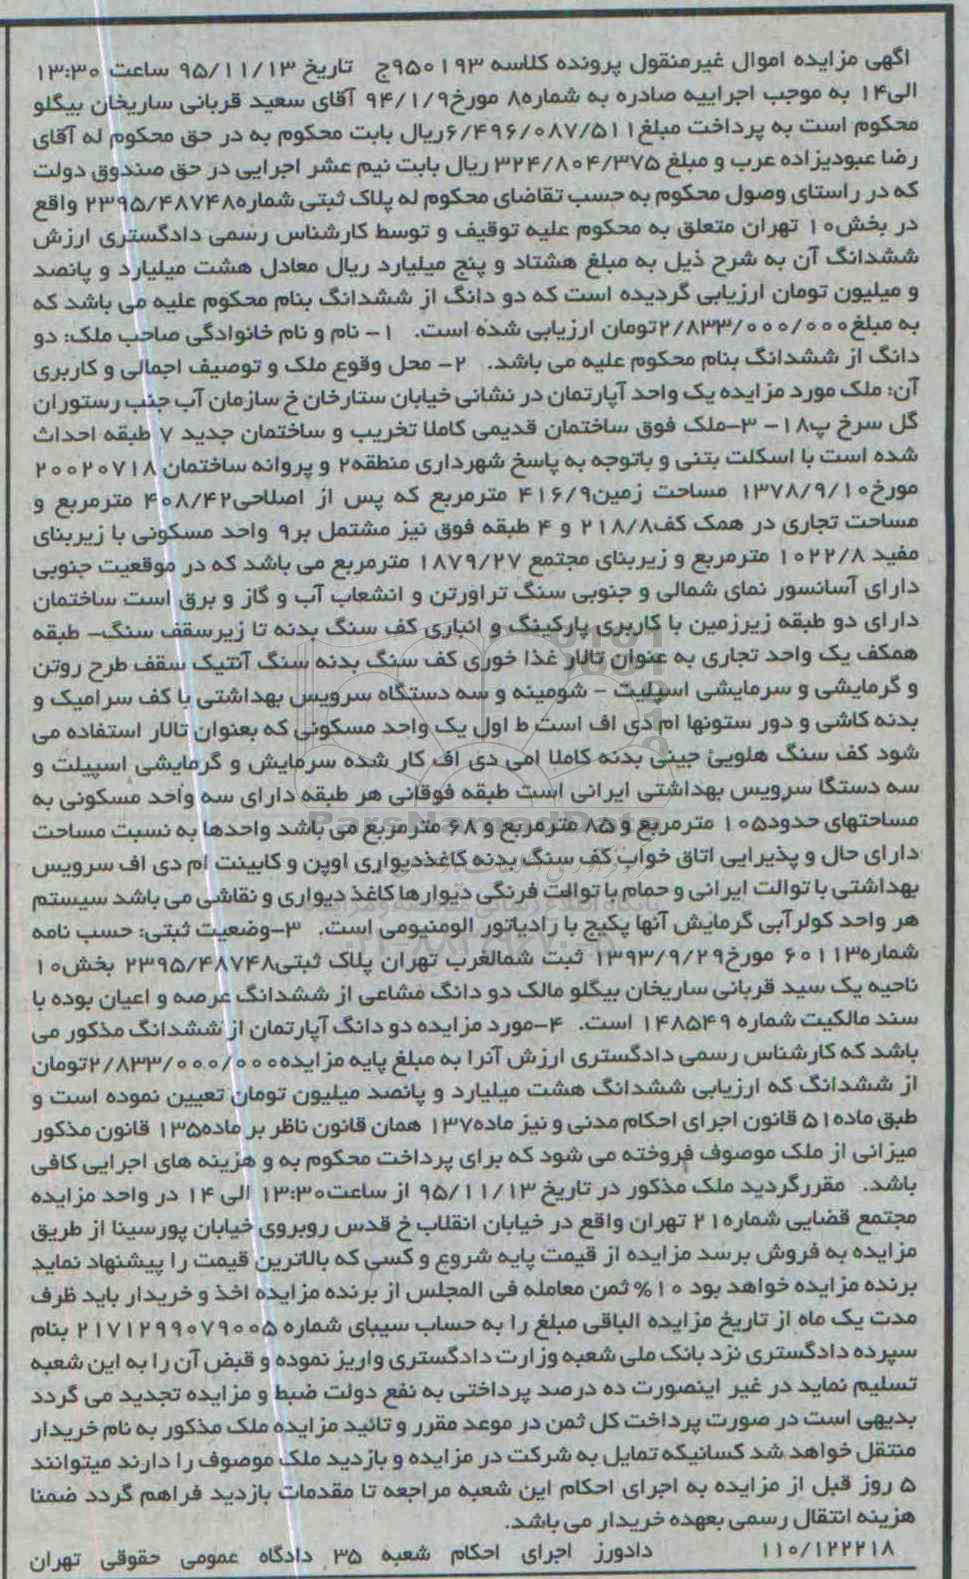 آگهی مزایده اموال غیرمنقول پرونده کلاسه ۹۵۰۱۹۳ج تاریخ ۹۵/۱۱/۱۳ ساعت ۱۳:۳۰
الی۱۴ به موجب اجراییه صادره به شماره۸ مورخ۹۴/۱/۹ آقای سعید قربانی ساریخان بیگلو
محکوم است به پرداخت مبلغ۶/۴۹۶/۰۸۷/۵۱۱ریال بابت محکوم به در حق محکوم له آقای
رضا عبودیزاده عرب و مبلغ ۳۲۴/۸۰۴/۳۷۵ ریال بابت نیم عشر اجرایی در حق صندوق دولت
که در راستای وصول محکوم به حسب تقاضای محکوم له پلاک ثبتی شماره۲۳۹۵/۴۸۷۴۸ واقع
در بخش۱۰ تهران متعلق به محکوم علیه توقیف و توسط کارشناس رسمی دادگستری ارزش
ششدانگ آن به شرح ذیل به مبلغ هشتاد و پنج میلیارد ریال معادل هشت میلیارد و پانصد
و میلیون تومان ارزیابی گردیده است که دو دانگ از ششدانگ بنام محکوم علیه می باشد که
به مبلغ۲/۸۳۳/۰۰۰/۰۰۰تومان ارزیابی شده است. ۱- نام و نام خانوادگی صاحب ملک: دو
دانگ از ششدانگ بنام محکوم علیه می باشد. ۲- محل وقوع ملک و توصیف اجمالی و کاربری
آن: ملک مورد مزایده یک واحد آپارتمان در نشانی خیابان ستارخان خ سازمان آب جنب رستوران
گل سرخ پ۱۸- ۳-ملک فوق ساختمان قدیمی کاملا تخریب و ساختمان جدید ۷ طبقه احداث
شده است با اسکلت بتنی و باتوجه به پاسخ شهرداری منطقه۲ و پروانه ساختمان ۲۰۰۲۰۷۱۸
مورخ۱۳۷۸/۹/۱۰ مساحت زمین۴۱۶/۹ مترمربع که پس از اصلاحی۴۰۸/۴۲ مترمربع و
مساحت تجاری در همک کف۲۱۸/۸ و ۴ طبقه فوق نیز مشتمل بر۹ واحد مسکونی با زیربنای
مفید ۱۰۲۲/۸ مترمربع و زیربنای مجتمع ۱۸۷۹/۲۷ مترمربع می باشد که در موقعیت جنوبی
دارای آسانسور نمای شمالی و جنوبی سنگ تراورتن و انشعاب آب و گاز و برق است ساختمان
دارای دو طبقه زیرزمین با کاربری پارکینگ و انباری کف سنگ بدنه تا زیرسقف سنگ- طبقه
همکف یک واحد تجاری به عنوان تالار غذا خوری کف سنگ بدنه سنگ آنتیک سقف طرح روتن
و گرمایشی و سرمایشی اسپلیت - شومینه و سه دستگاه سرویس بهداشتی با کف سرامیک و
بدنه کاشی و دور ستونها ام دی اف است ط اول یک واحد مسکونی که بعنوان تالار استفاده می
شود کف سنگ هلویئ جینی بدنه کاملا امی دی اف کار شده سرمایش و گرمایشی اسپیلت و
سه دستگا سرویس بهداشتی ایرانی است طبقه فوقانی هر طبقه دارای سه واحد مسکونی به
مساحتهای حدود۱۰۵ مترمربع و ۸۵ مترمربع و ۶۸ مترمربع می باشد واحدها به نسبت مساحت
دارای حال و پذیرایی اتاق خواب کف سنگ بدنه کاغذدیواری اوپن و کابینت ام دی اف سرویس
بهداشتی با توالت ایرانی و حمام با توالت فرنگی دیوارها کاغذ دیواری و نقاشی می باشد سیستم
هر واحد کولرآبی گرمایش آنها پکیج با رادیاتور الومنیومی است. ۳-وضعیت ثبتی: حسب نامه
شماره۶۰۱۱۳ مورخ۱۳۹۳/۹/۲۹ ثبت شمالغرب تهران پلاک ثبتی۲۳۹۵/۴۸۷۴۸ بخش۱۰
ناحیه یک سید قربانی ساریخان بیگلو مالک دو دانگ مشاعی از ششدانگ عرصه و اعیان بوده با
سند مالکیت شماره ۱۴۸۵۴۹ است. ۴-مورد مزایده دو دانگ آپارتمان از ششدانگ مذکور می
باشد که کارشناس رسمی دادگستری ارزش آنرا به مبلغ پایه مزایده۲/۸۳۳/۰۰۰/۰۰۰تومان
از ششدانگ که ارزیابی ششدانگ هشت میلیارد و پانصد میلیون تومان تعیین نموده است و
طبق ماده۵۱ قانون اجرای احکام مدنی و نیز ماده۱۳۷ همان قانون ناظر بر ماده۱۳۵ قانون مذکور
میزانی از ملک موصوف فروخته می شود که برای پرداخت محکوم به و هزینه های اجرایی کافی
باشد. مقررگردید ملک مذکور در تاریخ ۹۵/۱۱/۱۳ از ساعت۱۳:۳۰ الی ۱۴ در واحد مزایده
مجتمع قضایی شماره۲۱ تهران واقع در خیابان انقلاب خ قدس روبروی خیابان پورسینا از طریق
مزایده به فروش برسد مزایده از قیمت پایه شروع و کسی که بالاترین قیمت را پیشنهاد نماید
برنده مزایده خواهد بود ۱۰% ثمن معامله فی المجلس از برنده مزایده اخذ و خریدار باید ظرف
مدت یک ماه از تاریخ مزایده الباقی مبلغ را به حساب سیبای شماره ۲۱۷۱۲۹۹۰۷۹۰۰۵ بنام
سپرده دادگستری نزد بانک ملی شعبه وزارت دادگستری واریز نموده و قبض آن را به این شعبه
تسلیم نماید در غیر اینصورت ده درصد پرداختی به نفع دولت ضبط و مزایده تجدید می گردد
بدیهی است در صورت پرداخت کل ثمن در موعد مقرر و تائید مزایده ملک مذکور به نام خریدار
منتقل خواهد شد کسانیکه تمایل به شرکت در مزایده و بازدید ملک موصوف را دارند میتوانند
۵ روز قبل از مزایده به اجرای احکام این شعبه مراجعه تا مقدمات بازدید فراهم گردد ضمنا
هزینه انتقال رسمی بعهده خریدار می باشد.
۱۱۰/۱۲۲۲۱۸ دادورز اجرای احکام شعبه ۳۵ دادگاه عمومی حقوقی تهران